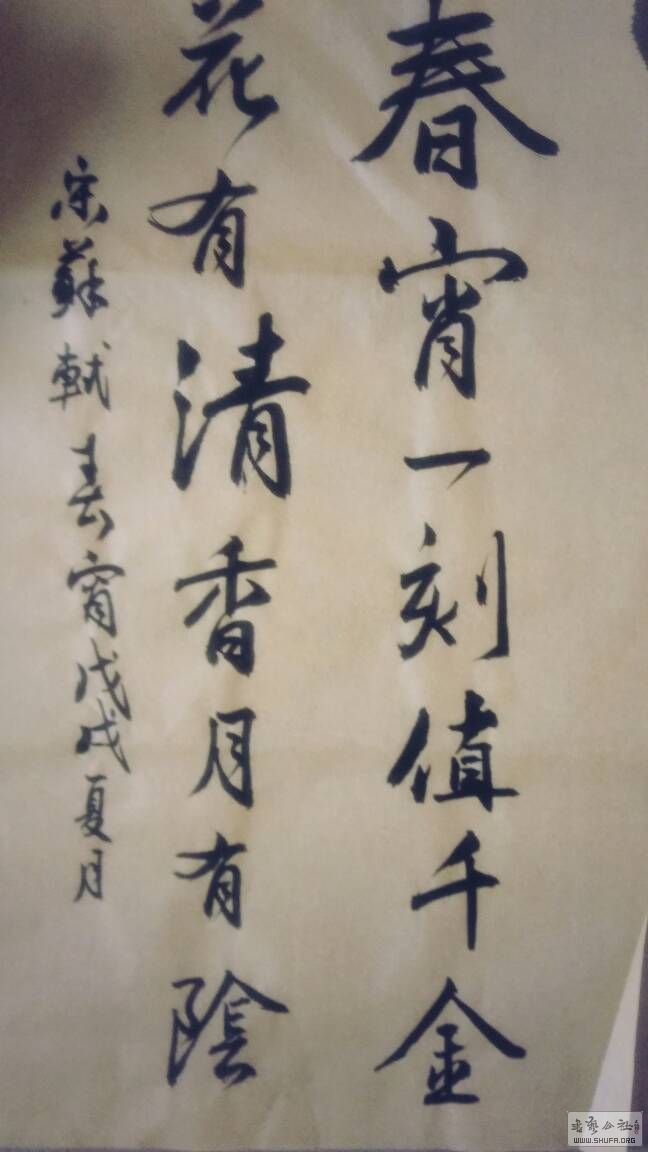 春宵一刻值千金
花有清香月有陰
宋蘇軾春宵戊戌夏月
WWW.SHUFA.ORG